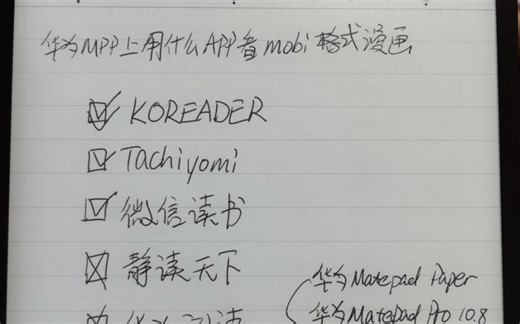 华为MPP上用什么APP看mobi格式漫画
KOREADER
Tachiyomi
微信读书
静读天下
华为Matepad Paper
华为Matepad Pro 10.8